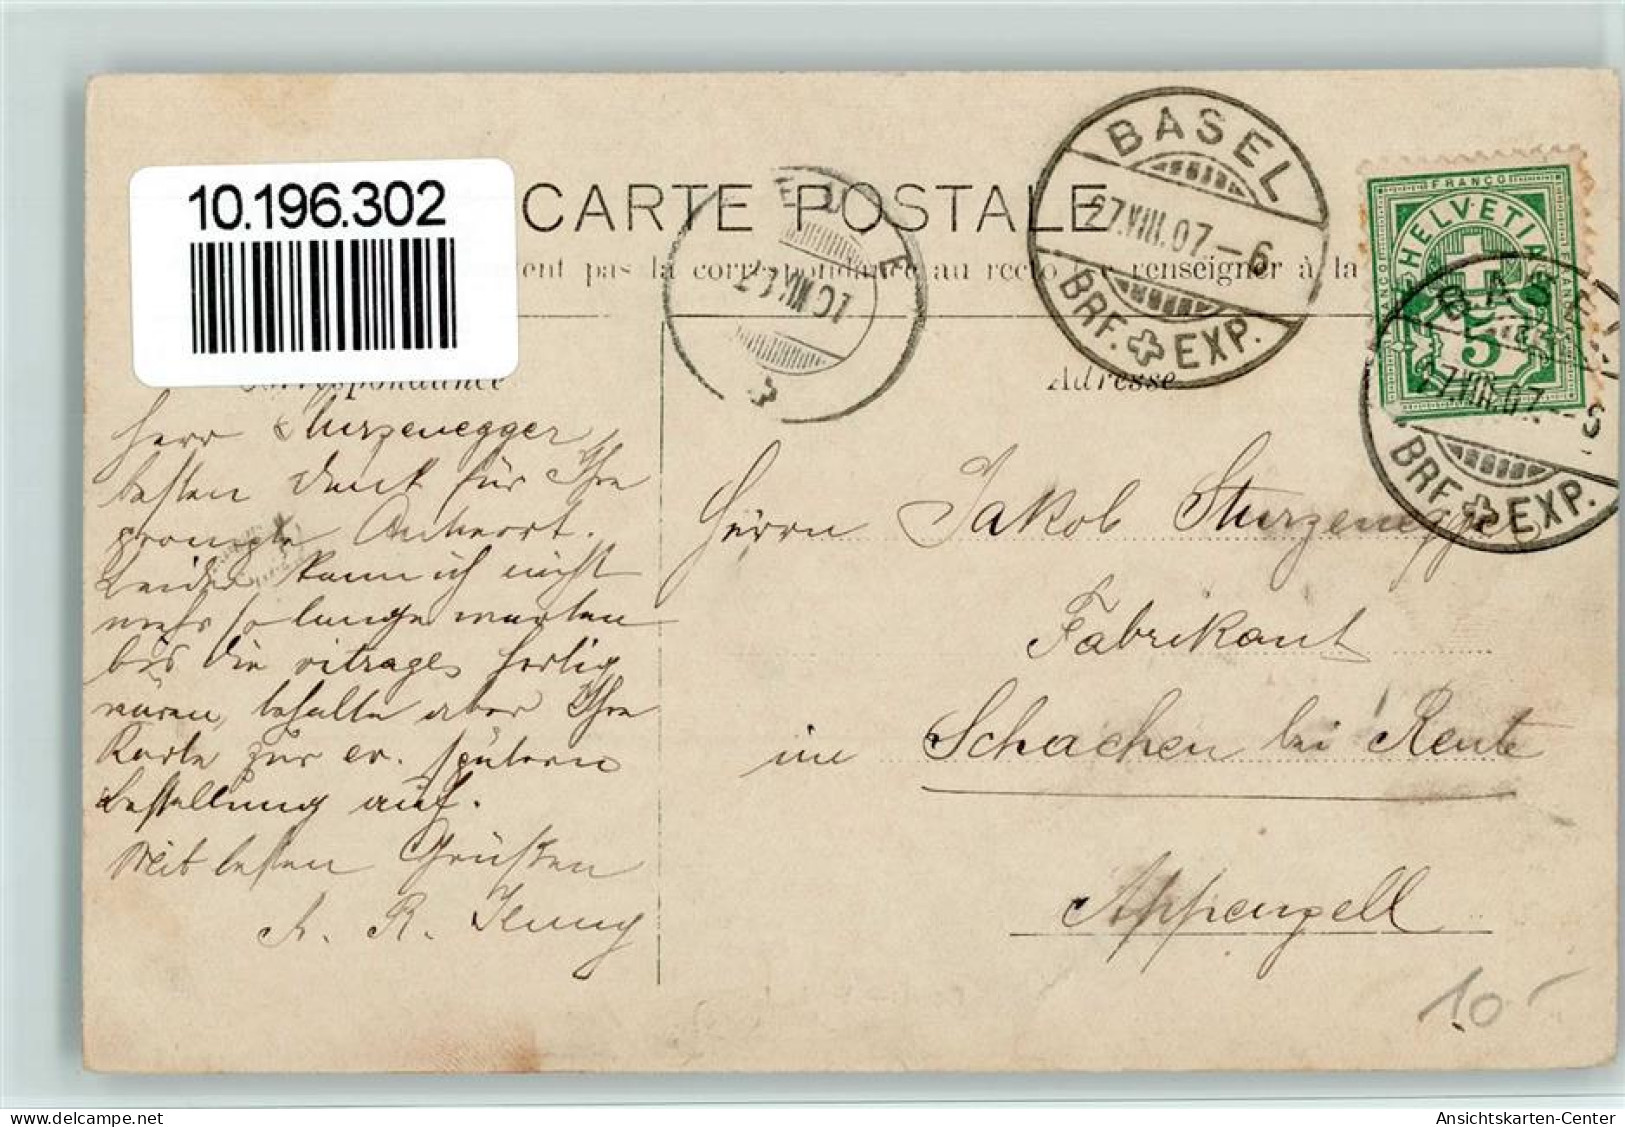 10.196.302
CARTE POSTALE
ent pas la correspondance au recto renseigner à la
Correspondance
Adresse
BASEL
27.VIII.07.-6
BRF. EXP.
FRANCO
HELVETIA
5
BASEL
27.VIII.07.-S
BRF. EXP.
VIII.07
Herr Sturzenegger,
besten Dank für Ihre
prompte Antwort.
Leider kann ich nicht
mehr so lange warten
bis die vitrages fertig
wären, behalte aber Ihre
Karte zur ev. spätern
Bestellung auf.
Mit besten Grüßen
R.
Herrn Jakob Sturzenegger
Fabrikant
in Schachen bei Reute
Appenzell
10
www.delcampe.net
Ansichtskarten-Center